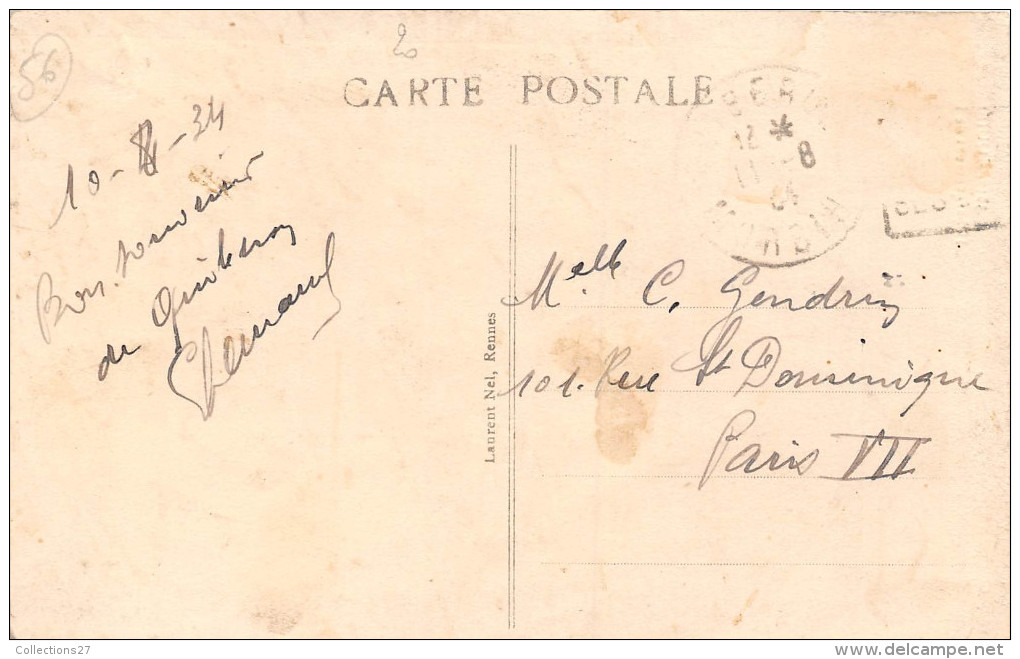 56
20
CARTE POSTALE
12 *
11 - 8
34
MORBIHAN
10-8-34
Bon souvenir
de Quiberon
Mselle C. Gendrin
101. Rue St Dominique
Paris VII
Laurent Nel, Rennes
Collections27
delcampe.net